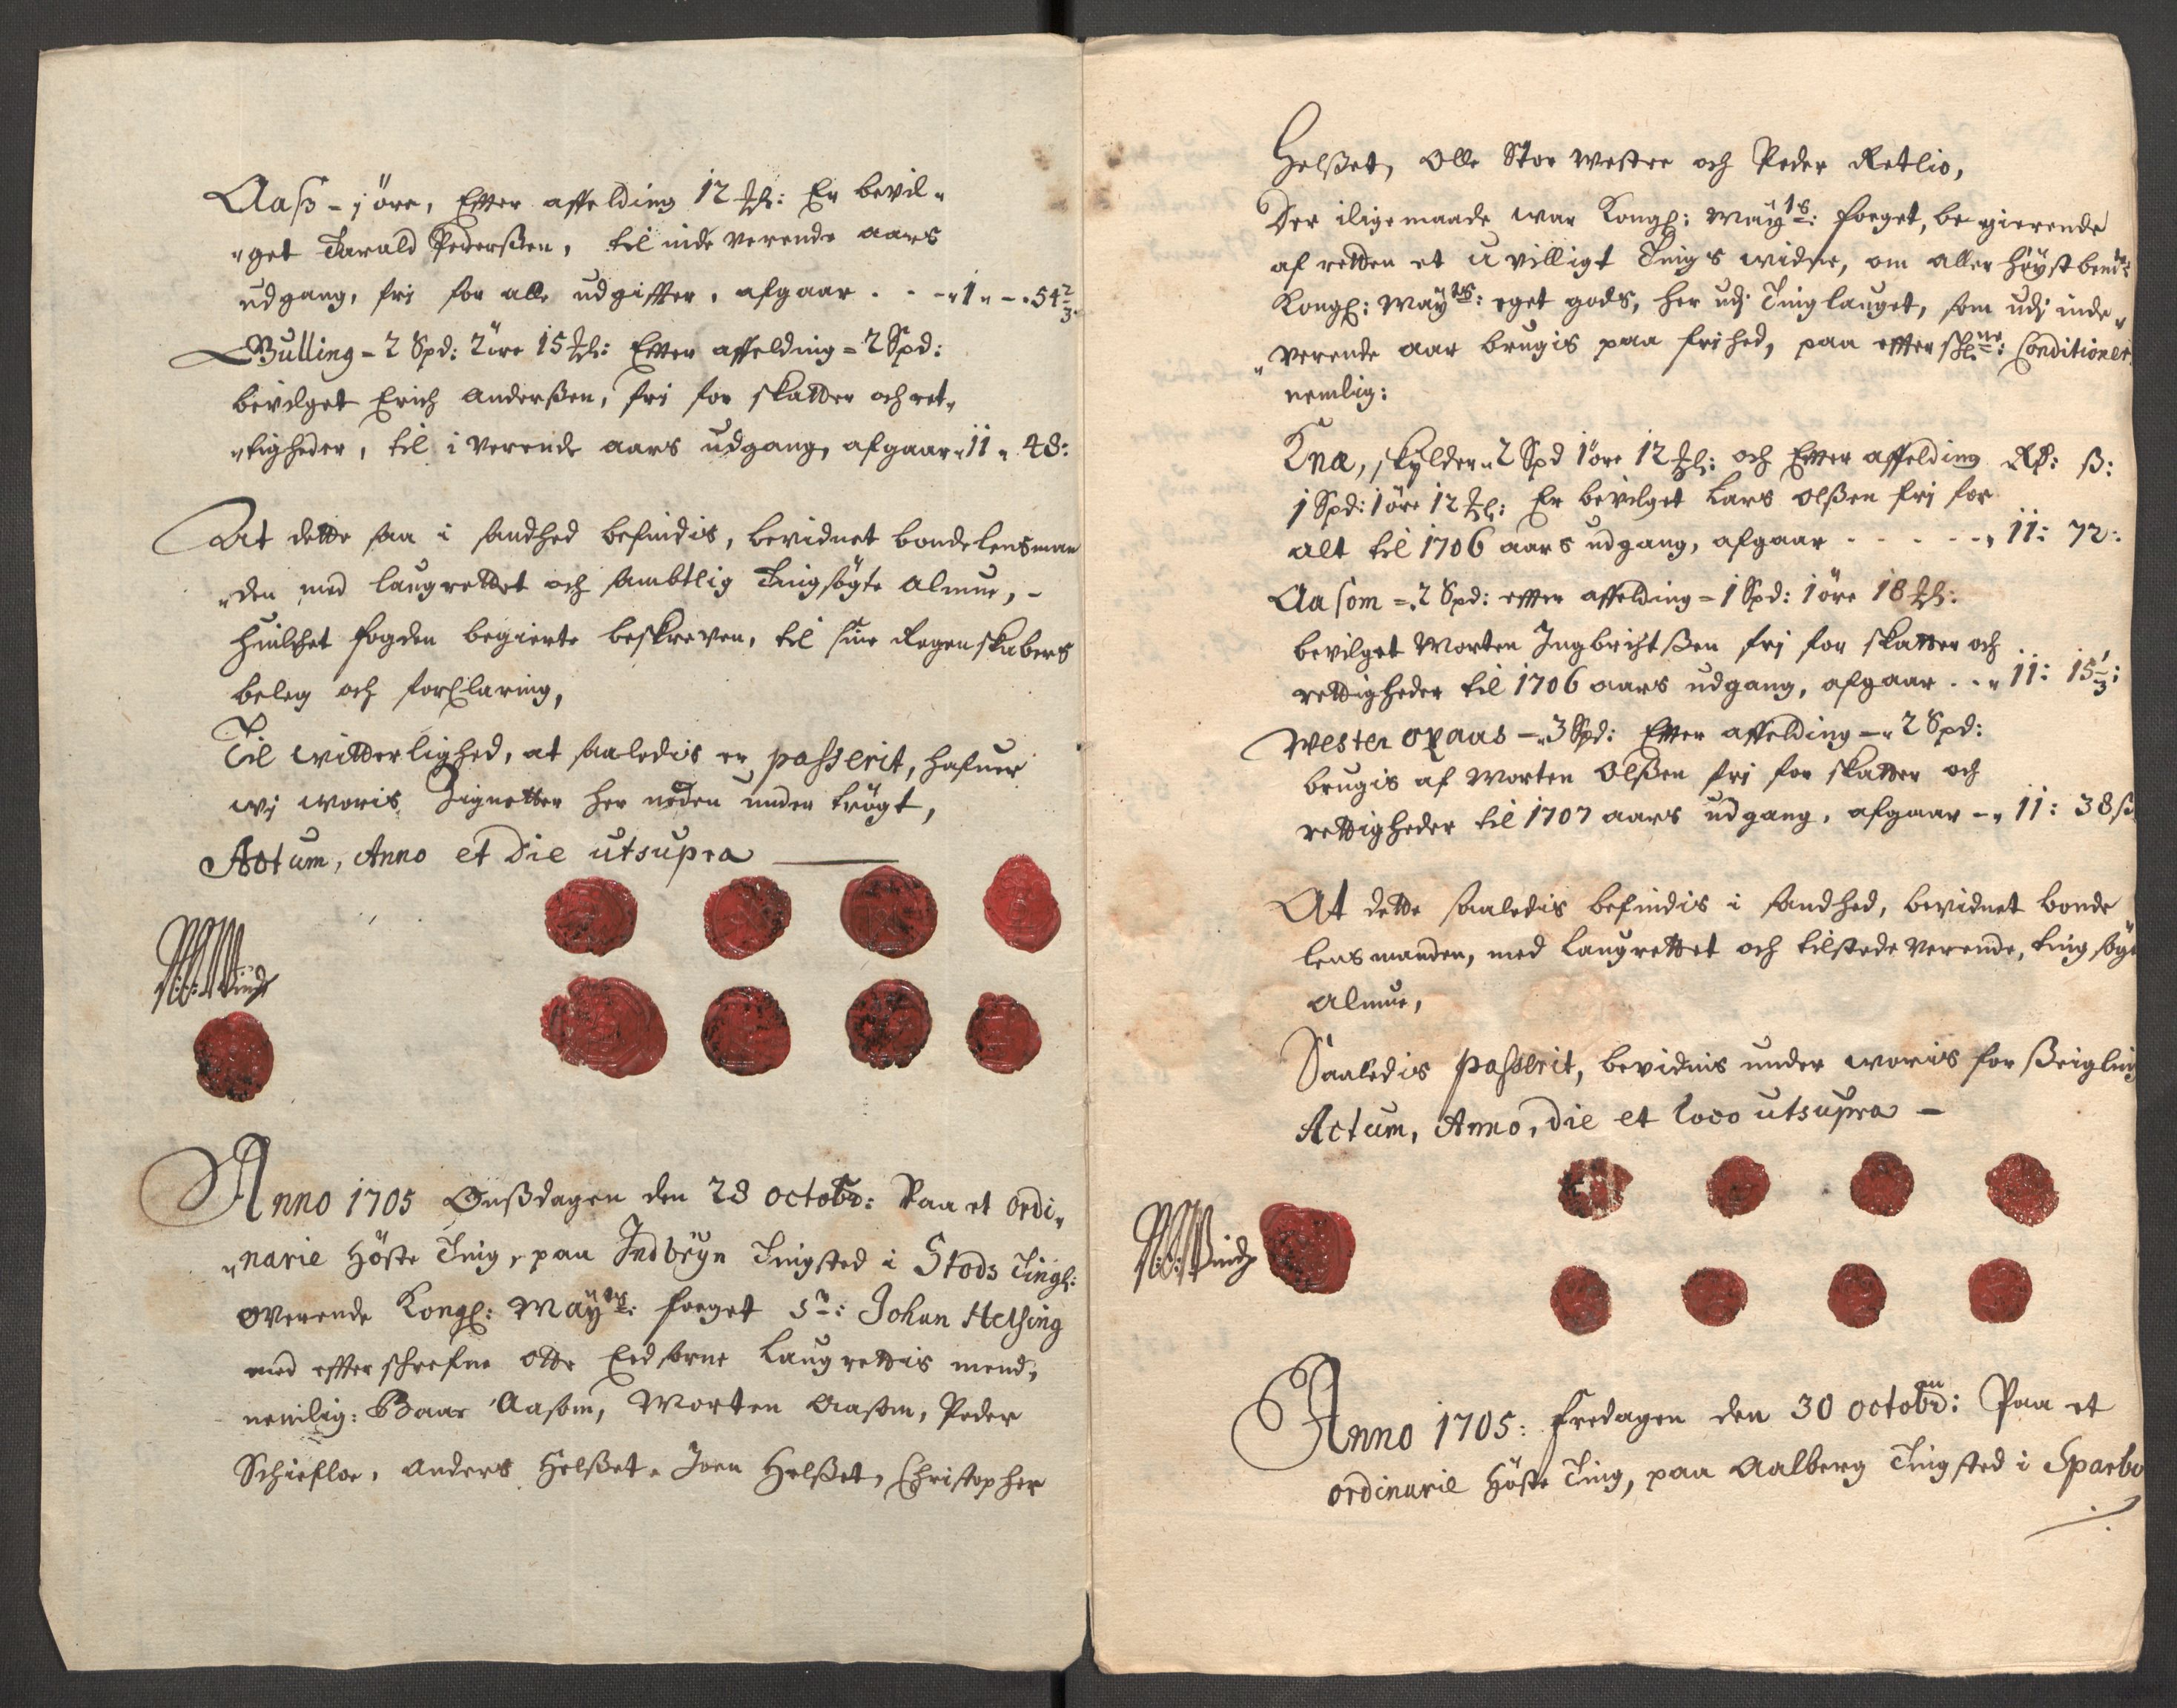 Aaß - j öre, Efter affelding 12 ℔: Er bevil„
„get Harald Pederßen, til inde verende aars
udgang, fri for alle udgiffter, afgaar . . - „1„ - . 54 2/3.
Bulling - 2 Spd: 2 öre 15 ℔: Efter affelding = 2 Spd:
bevilget Erich Anderßen, fri for skatter och ret„
„tigheder, til i verende aars udgang, afgaar „11 „ 48:
At dette saa i sandhed befindis, bevidnet bondelensman
„den med laugrettet och sambtlig Tingsögte Almue, -
huilchet fogden begierte beskreven, til sine Regenskabers
beleg och forklaring,
Til witterlighed, at saaledis er passerit, hafuer
wj woris Zignetter her neden under trögt,
Actum, Anno et Die utsupra
Anno 1705 Onßdagen den 28 octobr: Paa et ordi„
„narie Höste Ting, paa Indbÿn Tingsted i Stods Tingl:
overende Kongl: Maÿts: foeget Sr: Johan Helsing
med effterschrefne otte Eedsorne Laugrettis mend,
nemlig: Baar Aasom, Morten Aasom, Peder
Schiefloe, Anders Helßet, Joen Helßet, Christopher
Helßet, Olle Stor westre och Peder Retlio,
Der iligemaade war Kongl: Maÿts: foeget, begierende
af retten et uvilligt Tings widne, om aller höystbente:
Kongl: Maÿts: eget gods, her udj Tinglauget, som udj inde„
„verende aar brugis paa frihed, paa effterschne: Conditioner
nemlig:
Kna, skylder „2 Spd 1 öre 12 ℔: och Efter affelding Rd: ß:
1 Spd: 1 öre 12 ℔: Er bevilget Lars Olßen fri for
alt til 1706 aars udgang, afgaar - - - - - „ 11: 72:
Aasom =. 2 Spd: effter affelding = 1 Spd: 1 öre 18 ℔:
bevilget Morten Ingbrichtßen fri for skatter och
rettigheder til 1706 aars udgang, afgaar . . „ 11: 15 1/3:
Wester opaas - „3 Spd: Efter affelding - „ 2 Spd:
brugis af Morten Olßen fri for skatter och
rettigheder til 1707 aars udgang, afgaar - „ 11: 38 ß
At dette saaledis befindis i sandhed, bevidnet bonde
lensmanden, med Laugrettet och tilstedeverende, tingsögt
Almue,
Saaledis passerit, bevidnis under woris forßeigling
Actum, Anno, Die et Loco utsupra -
Anno 1705: Fredagen den 30 octobr: Paa et
ordinarie Höste Ting, paa Aalberg Tingsted i Sparbo